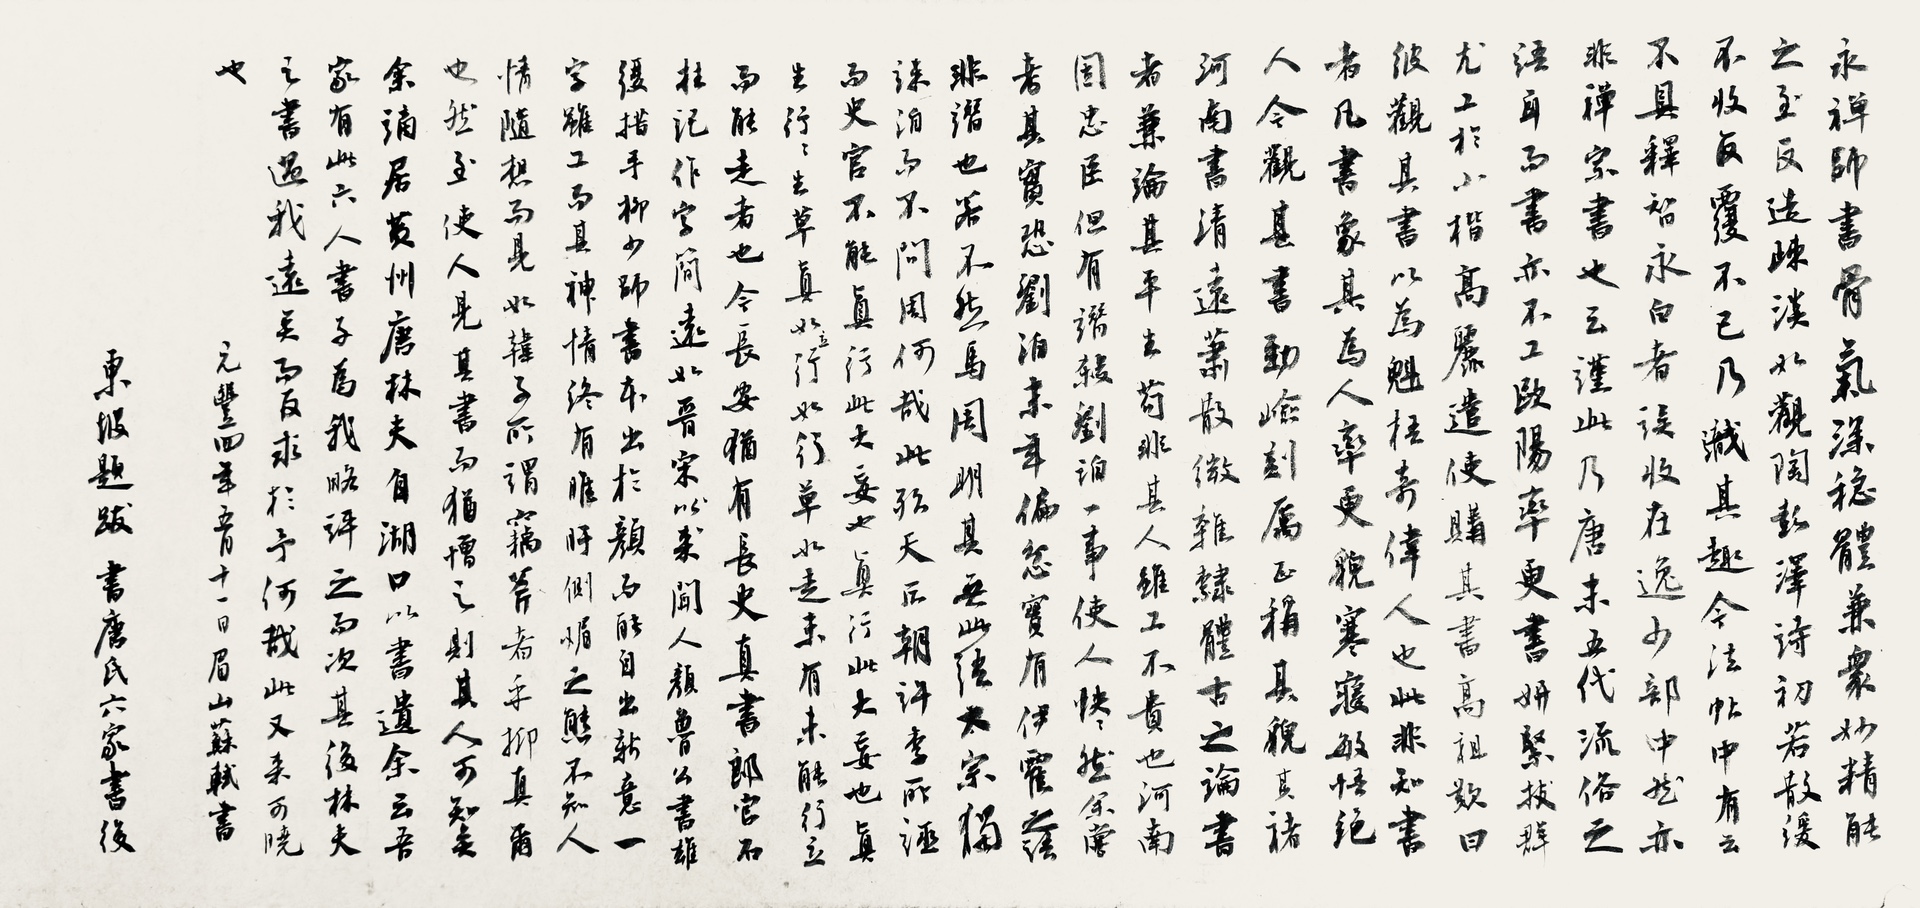 永禪師書骨氣深穩體兼衆妙精能
之至反造疎淡如觀陶彭澤詩初若散緩
不收反覆不已乃識其趣今法帖中有云
不具釋智永白者誤收在逸少部中然亦
非禪家書也云謹此乃唐末五代流俗之
語耳而書亦不工歐陽率更書妍緊拔群
尤工於小楷高麗遣使購其書高祖歎曰
彼觀其書以為魁梧奇偉人也此非知書
者凡書象其為人率更貌寒寢敏悟絕
人今觀其書勁嶮刻厲正稱其貌其褚
河南書清遠蕭散微雜隸體古之論書
者兼論其平生苟非其人雖工不貴也河南
固忠臣但有譖殺劉洎一事使人怏然余嘗
考其實恐劉洎末年偏忿實有伊霍之語
非譖也若不然馬周明其無此語太宗獨
誅洎而不問周何哉此殆天后朝許李所誣
而史官不能眞行此大妄也眞行此大妄也眞
生行〻生草眞如立行如行草如走未有未能行立
而能走者也今長安猶有長史真書郎官石
柱記作字簡遠如晉宋以來聞人顏魯公書雄
復措手柳少師書書本出於顏而能自出新意一
字雖工而其神情終有睢盱側媚之態不知人
情隨想而見如韓子所謂竊斧者乎抑真爾
也然至使人見其書而猶憎之則其人可知矣
余謫居黃州唐林夫自湖口以書遺余云吾
家有此六人書子為我略評之而次其後林夫
之書過我遠矣而反求於予何哉此又未可曉
也
元豐四年五月十一日眉山蘇軾書
東坡題跋 書唐氏六家書後